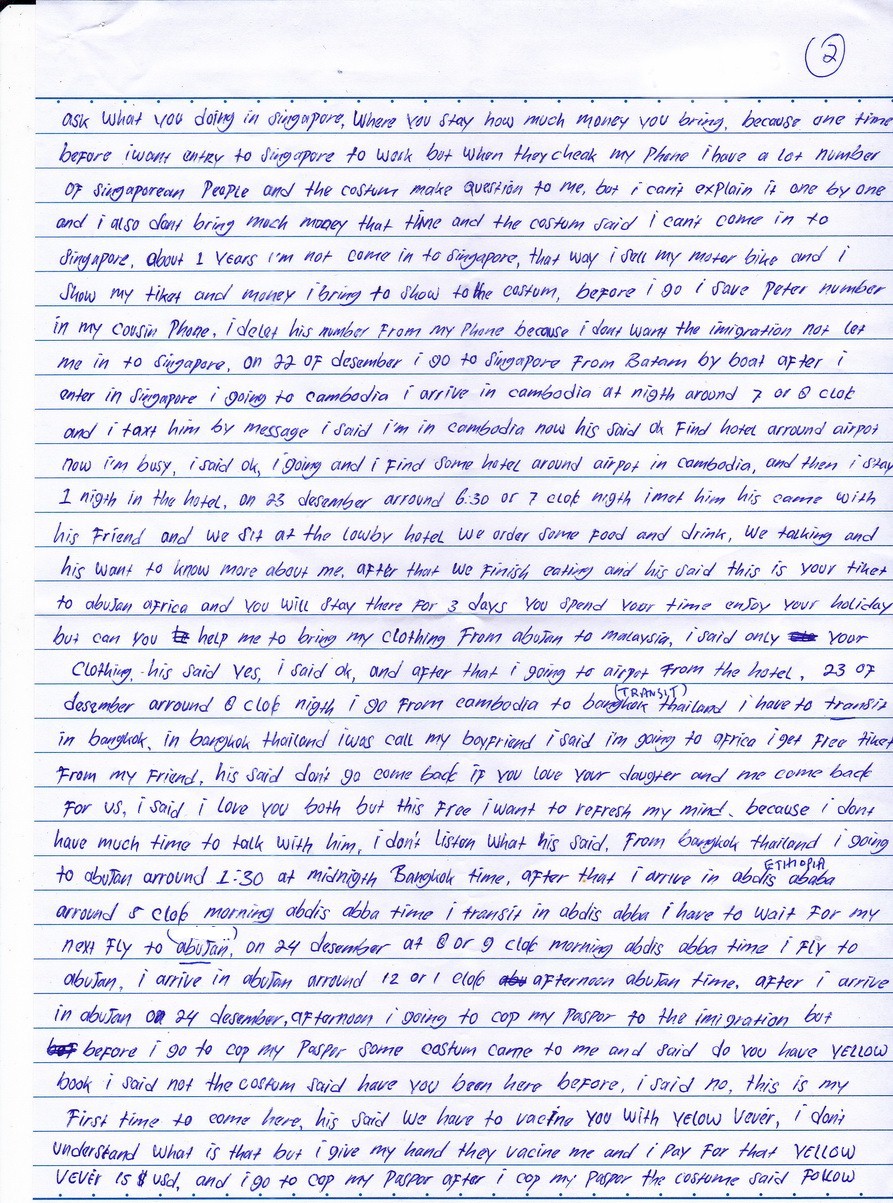 2
ask what you doing in singapore, where you stay how much money you bring, because one time
before i want entry to singapore to work but when they cheak my phone i have a lot number
of singaporean people and the costum make question to me, but i can't explain it one by one
and i also dont bring much money that time and the costum said i can't come in to
singapore, about 1 years i'm not come in to singapore, that way i sell my motor bike and i
show my tiket and money i bring to show to the costum, before i go i save peter number
in my cousin phone, i delet his number from my phone because i dont want the imigration not let
me in to singapore, on 22 of desember i go to singapore from Batam by boat after i
enter in singapore i going to cambodia i arrive in cambodia at nigth around 7 or 8 clok
and i taxt him by message i said i'm in cambodia now his said ok find hotel arround airpot
now i'm busy, i said ok, i going and i find some hotel around airpot in cambodia, and then i stay
1 nigth in the hotel, on 23 desember arround 6:30 or 7 clok nigth i met him his came with
his friend and we sit at the lowby hotel we order some food and drink, we talking and
his want to know more about me, after that we finish eating and his said this is your tiket
to abujan africa and you will stay there for 3 days you spend your time enjoy your holiday
but can you help me to bring my clothing from abujan to malaysia, i said only your
clothing, his said yes, i said ok, and after that i going to airpot from the hotel, 23 of
desember arround 8 clok nigth i go from cambodia to bangkok (TRANSIT) thailand i have to transit
in bangkok, in bangkok thailand i was call my boyfriend i said i'm going to africa i get free tiket
from my friend, his said don't go come back if you love your daughter and me come back
for us, i said i love you both but this free i want to refresh my mind, because i dont
have much time to talk with him, i don't listen what his said, from bangkok thailand i going
to abujan arround 1:30 at midnigth Bangkok time, after that i arrive in abdis ababa ETHIOPIA
arround 8 clok morning abdis abba time i transit in abdis abba i have to wait for my
next fly to (abujan), on 24 desember at 8 or 9 clok morning abdis abba time i fly to
abujan, i arrive in abujan arround 12 or 1 clok afternoon abujan time, after i arrive
in abujan on 24 desember, afternoon i going to cop my paspor to the imigration but
before i go to cop my paspor some costum came to me and said do you have YELLOW
book i said not the costum said have you been here before, i said no, this is my
first time to come here, his said we have to vacine you with YELOW VEVER, i don't
understand what is that but i give my hand they vacine me and i pay for that YELLOW
VEVER is $ usd, and i go to cop my paspor after i cop my paspor the costume said follow